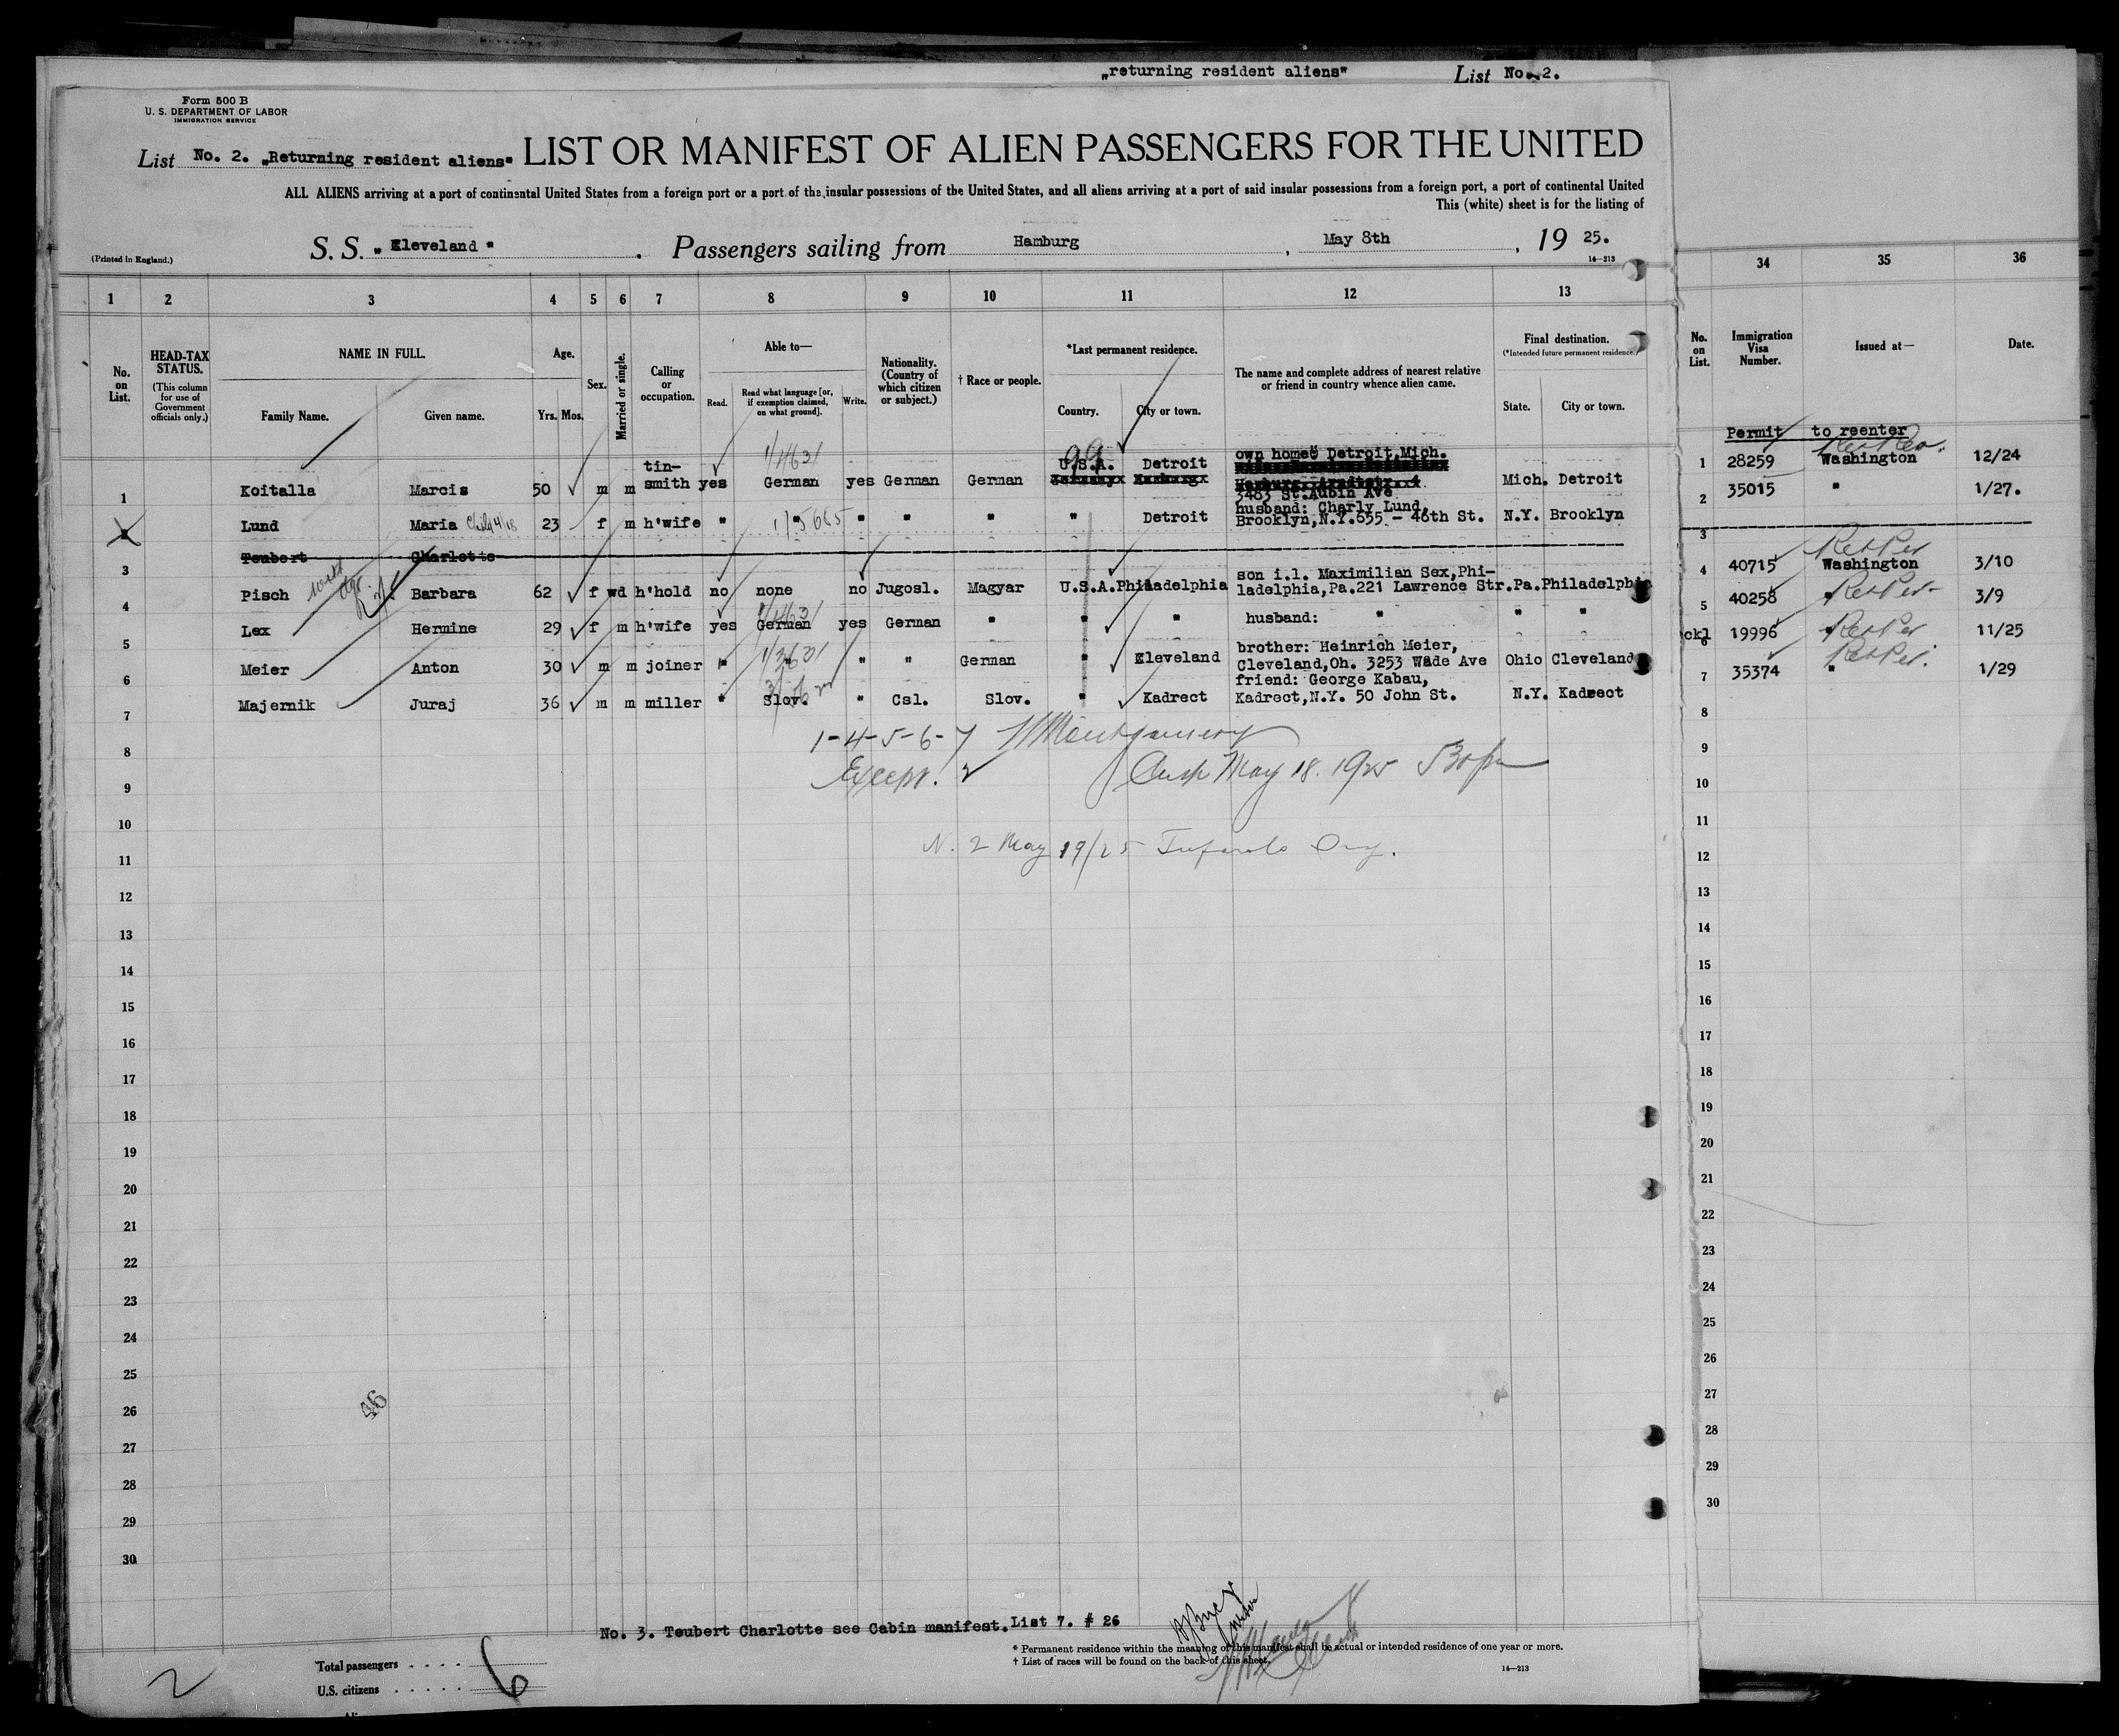 „returning resident aliens" List No. 2.
Form 500 B
U. S. DEPARTMENT OF LABOR
IMMIGRATION SERVICE
List No. 2. „Returning resident aliens" LIST OR MANIFEST OF ALIEN PASSENGERS FOR THE UNITED
ALL ALIENS arriving at a port of continental United States from a foreign port or a port of the insular possessions of the United States, and all aliens arriving at a port of said insular possessions from a foreign port, a port of continental United
This (white) sheet is for the listing of
S. S. „ Kleveland " . Passengers sailing from Hamburg , May 8th , 19 25.
(Printed in England.) 14—213
1 2 3 4 5 6 7 8 9 10 11 12 13 34 35 36
No. on List.
HEAD-TAX STATUS.
(This column for use of Government officials only.)
NAME IN FULL.
Family Name. Given name.
Age.
Yrs. Mos.
Sex.
Married or single.
Calling or occupation.
Able to—
Read. Read what language [or, if exemption claimed, on what ground]. Write.
Nationality. (Country of which citizen or subject.)
† Race or people.
*Last permanent residence.
Country. City or town.
The name and complete address of nearest relative or friend in country whence alien came.
Final destination.
(*Intended future permanent residence.)
State. City or town.
No. on List.
Immigration Visa Number.
Issued at—
Date.
Permit to reenter
99
own home: Detroit, Mich.
1 Koitalla Marcis 50 m m tin-smith yes German yes German German U.S.A. Detroit 3483 St. Aubin Ave Mich. Detroit
1 28259 Washington 12/24
husband: Charly Lund,
Lund Maria 23 f m h'wife " " " " " " Detroit Brooklyn, N.Y. 655 - 46th St. N.Y. Brooklyn
2 35015 " 1/27.
3 Teubert Charlotte
3
son i.l. Maximilian Sex, Phi-
4 Pisch Barbara 62 f wd h'hold no none no Jugosl. Magyar U.S.A. Philadelphia ladelphia, Pa. 221 Lawrence Str. Pa. Philadelphia
4 40715 Washington 3/10
5 Lex Hermine 29 f m h'wife yes German yes German " " " husband: " " "
5 40258 " 3/9
brother: Heinrich Meier,
6 Meier Anton 30 m m joiner " " " " German " Kleveland Cleveland, Oh. 3253 Wade Ave Ohio Cleveland
6 19996 " 11/25
friend: George Kabau,
7 Majernik Juraj 36 m m miller " Slov. " Csl. Slov. " Kadrect Kadrect, N.Y. 50 John St. N.Y. Kadrect
7 35374 " 1/29
1-4-5-6-7 Montgomery
Except. 2 May 18. 1925
N. 2 May 19/25
8
9
10
11
12
13
14
15
16
17
18
19
20
21
22
23
24
25
26
27
28
29
30
46
No. 3. Teubert Charlotte see Cabin manifest. List 7. # 26
* Permanent residence within the meaning of this manifest shall be actual or intended residence of one year or more.
† List of races will be found on the back of this sheet.
14—213
Total passengers . . . . 6
U.S. citizens . . . . .
2